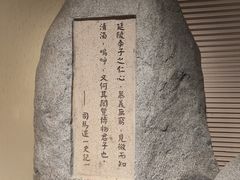 延陵季子之仁心，慕義無窮，見微而知
清濁，嗚呼，又何其閎覽博物君子也。
——司馬遷—史記—